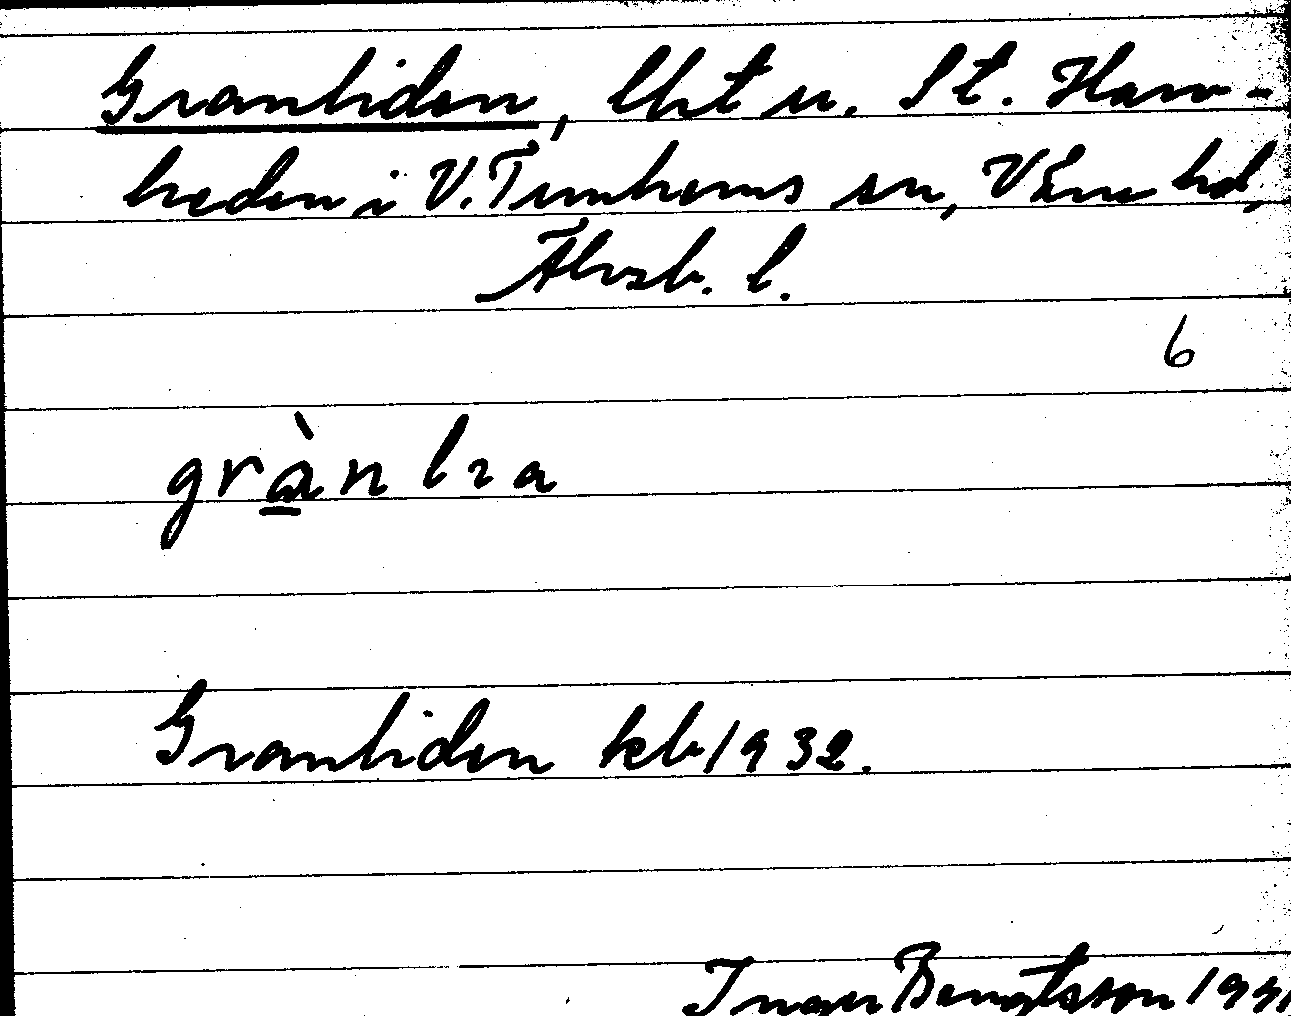 Granliden, lht u. St. Ham-
heden i V. Tunhems sn, Väne hd,
Älvsb. l.
6
grànlia
Granliden kb 1932.
Inger Bengtsson